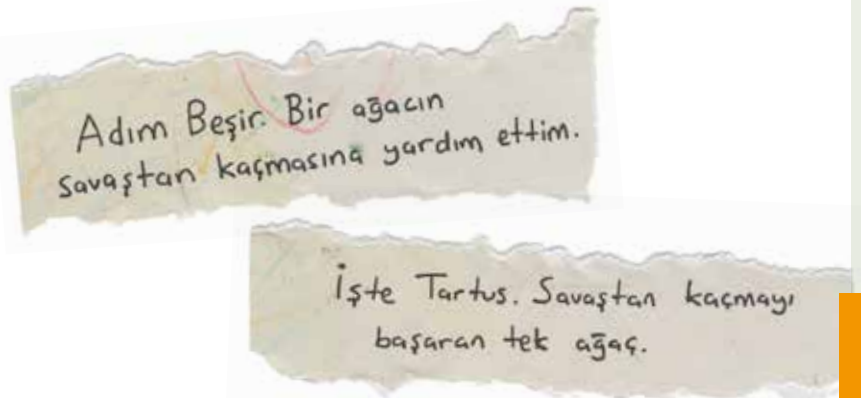 Adım Beşir. Bir ağacın
savaştan kaçmasına yardım ettim.
İşte Tartus. Savaştan kaçmayı
başaran tek ağaç.